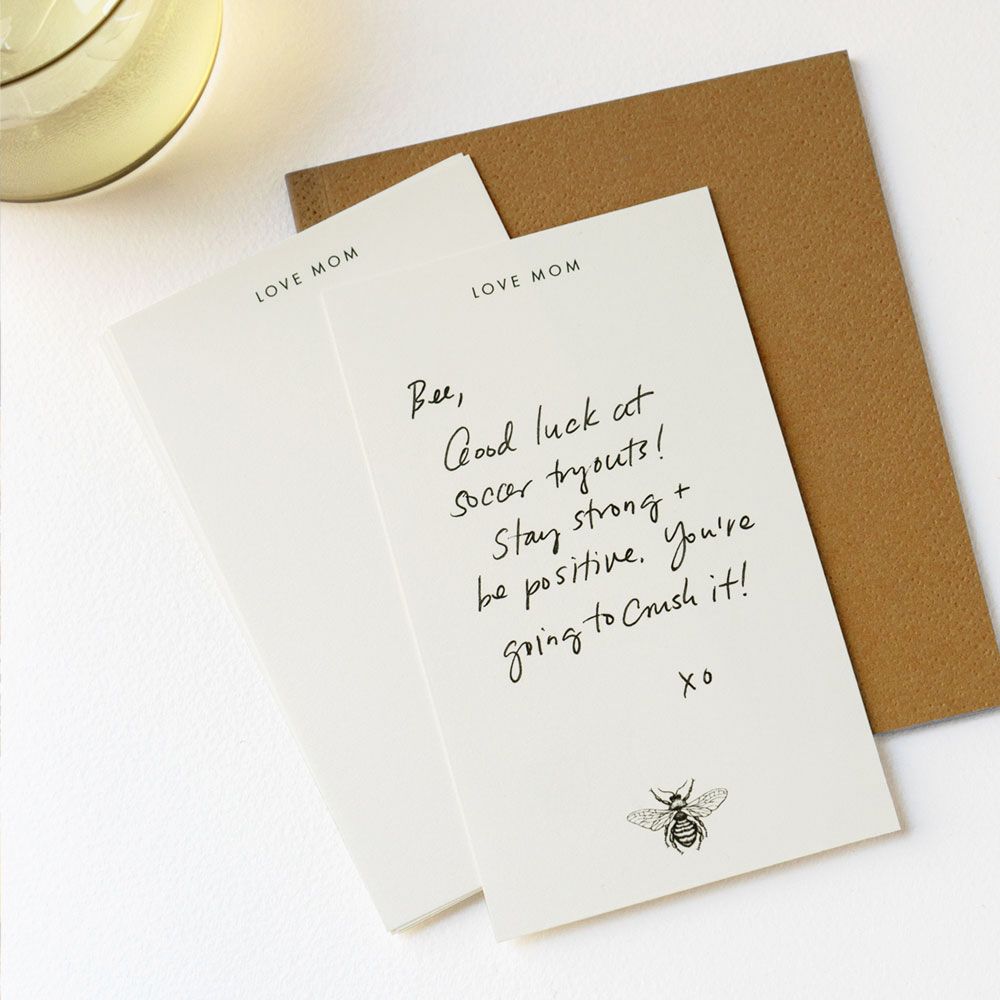 LOVE MOM
LOVE MOM
Bee,
Good luck at
soccer tryouts!
Stay strong +
be positive. You're
going to Crush it!
xo